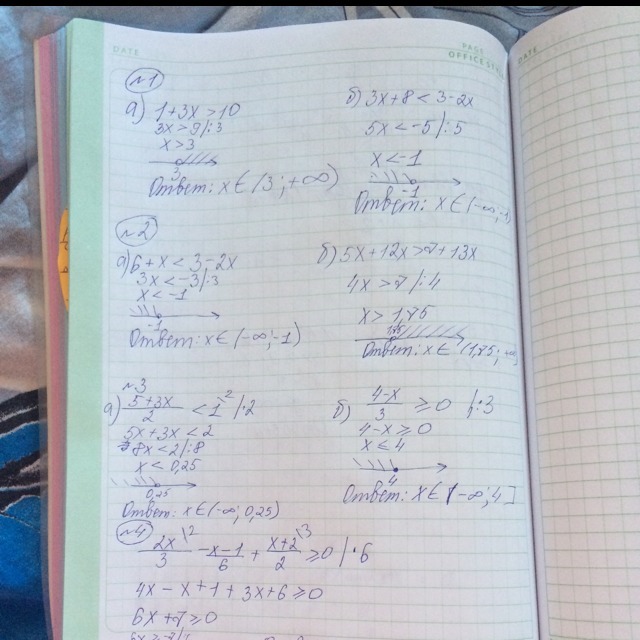 DATE
PAGE
OFFICE
DATE
№1
а) 1+3x>10
3x>9/:3
x>3
3
Ответ: x∈(3;+∞)
б) 3x+8<3-2x
5x<-5/:5
x<-1
-1
Ответ: x∈(-∞;-1
№2
а) 6+x<3-2x
3x<-3/:3
x<-1
-1
Ответ: x∈(-∞;-1)
б) 5x+12x>7+13x
4x>7/:4
x>1,75
1,75
Ответ: x∈(1,75;+∞
№3
а) (5+3x)/2 <1\2 /·2
5x+3x<2
8x<2/:8
x<0,25
0,25
Ответ: x∈(-∞;0,25)
б) (4-x)/3 ≥0 /·3
4-x≥0
x≤4
4
Ответ: x∈(-∞;4]
№4
2x\2/3 - (x-1)/6 + (x+2\3)/2 ≥0/·6
4x-x+1+3x+6≥0
6x+7≥0